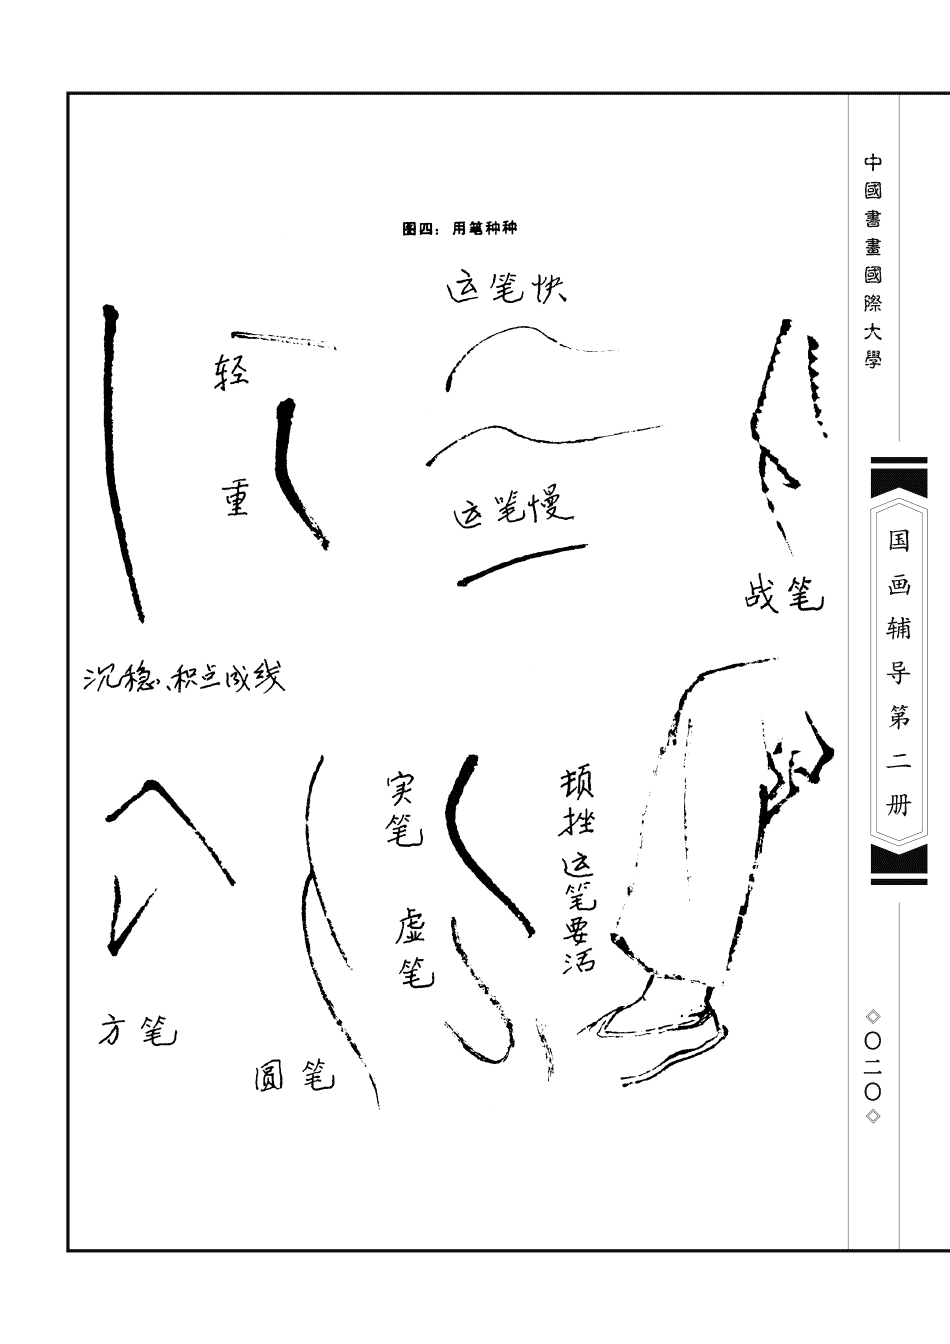 图四：用笔种种
运笔快
轻
重
运笔慢
战笔
沉稳、积点成线
实笔
虚笔
顿挫运笔要活
方笔
圆笔
中國書畫國際大學
国画辅导第二册
◇〇二〇◇